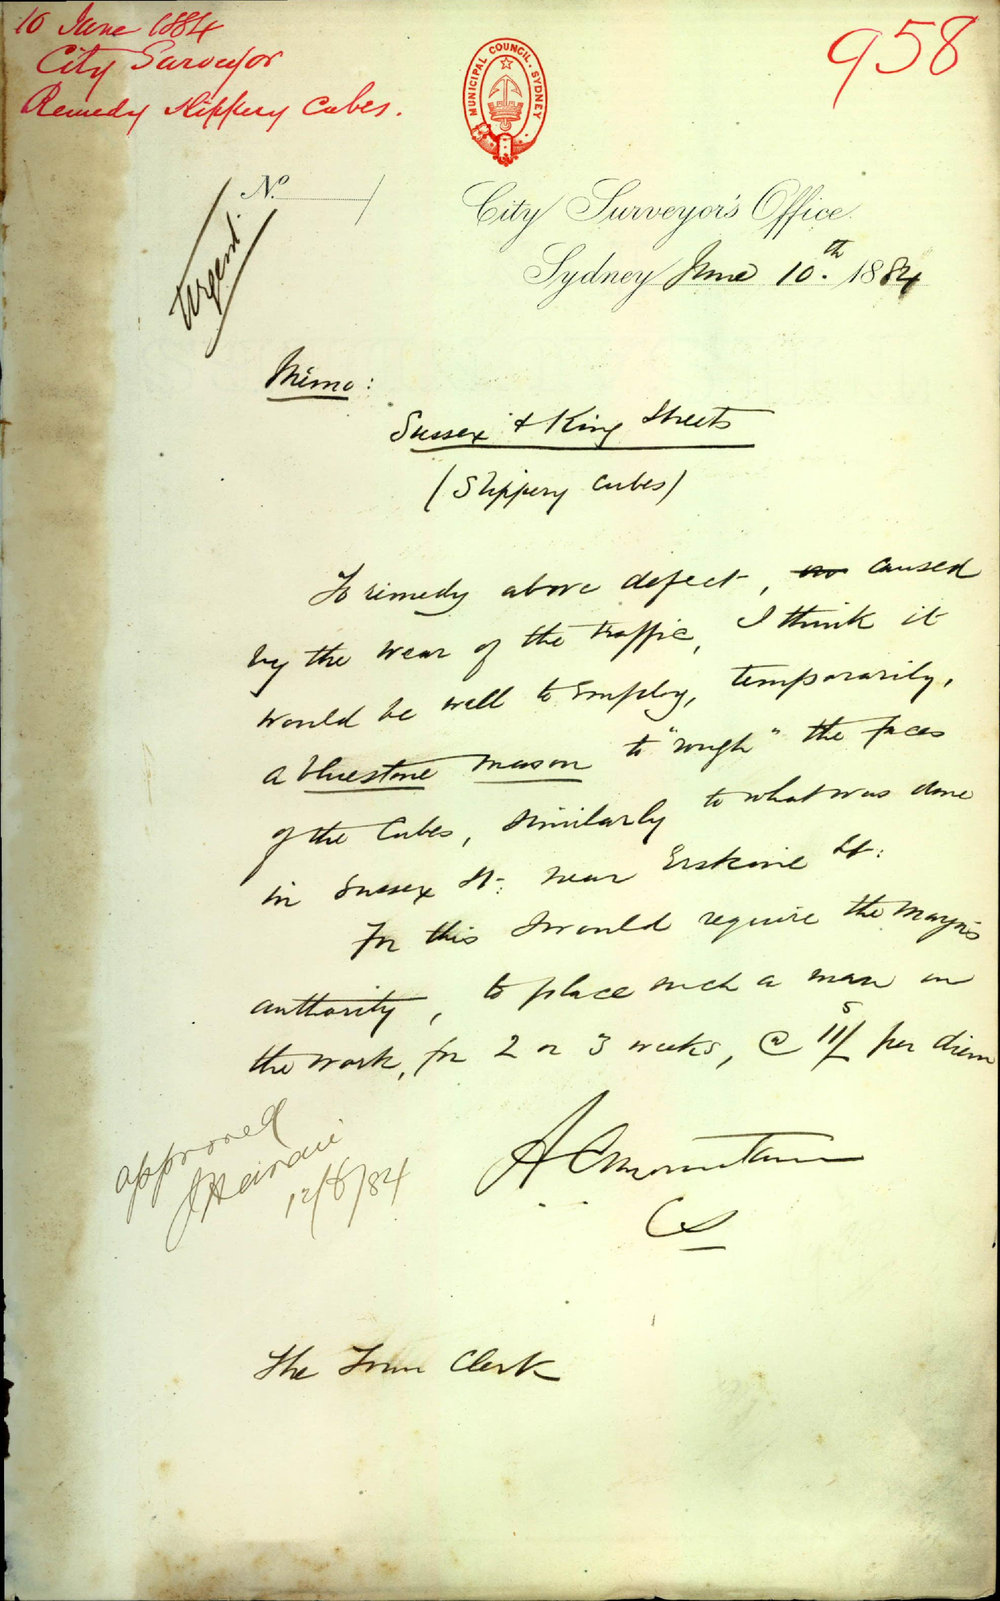 10 June 1884
City Surveyor
Remedy slippery cubes.
958
MUNICIPAL COUNCIL. SYDNEY
No.
Urgent
City Surveyor's Office.
Sydney June 10th. 1884
Memo:
Sussex & King Streets
(Slippery Cubes)
To remedy above defect, caused
by the wear of the traffic, I think it
would be well to employ, temporarily,
a bluestone mason to "rough" the faces
of the Cubes, similarly to what was done
in Sussex St: near Erskine St:
For this I would require the Mayor's
authority, to place such a man on
the work, for 2 or 3 weeks, @ 11/ per diem
approved
J Hardie
12/6/84
A C Mountain
CS
The Town Clerk